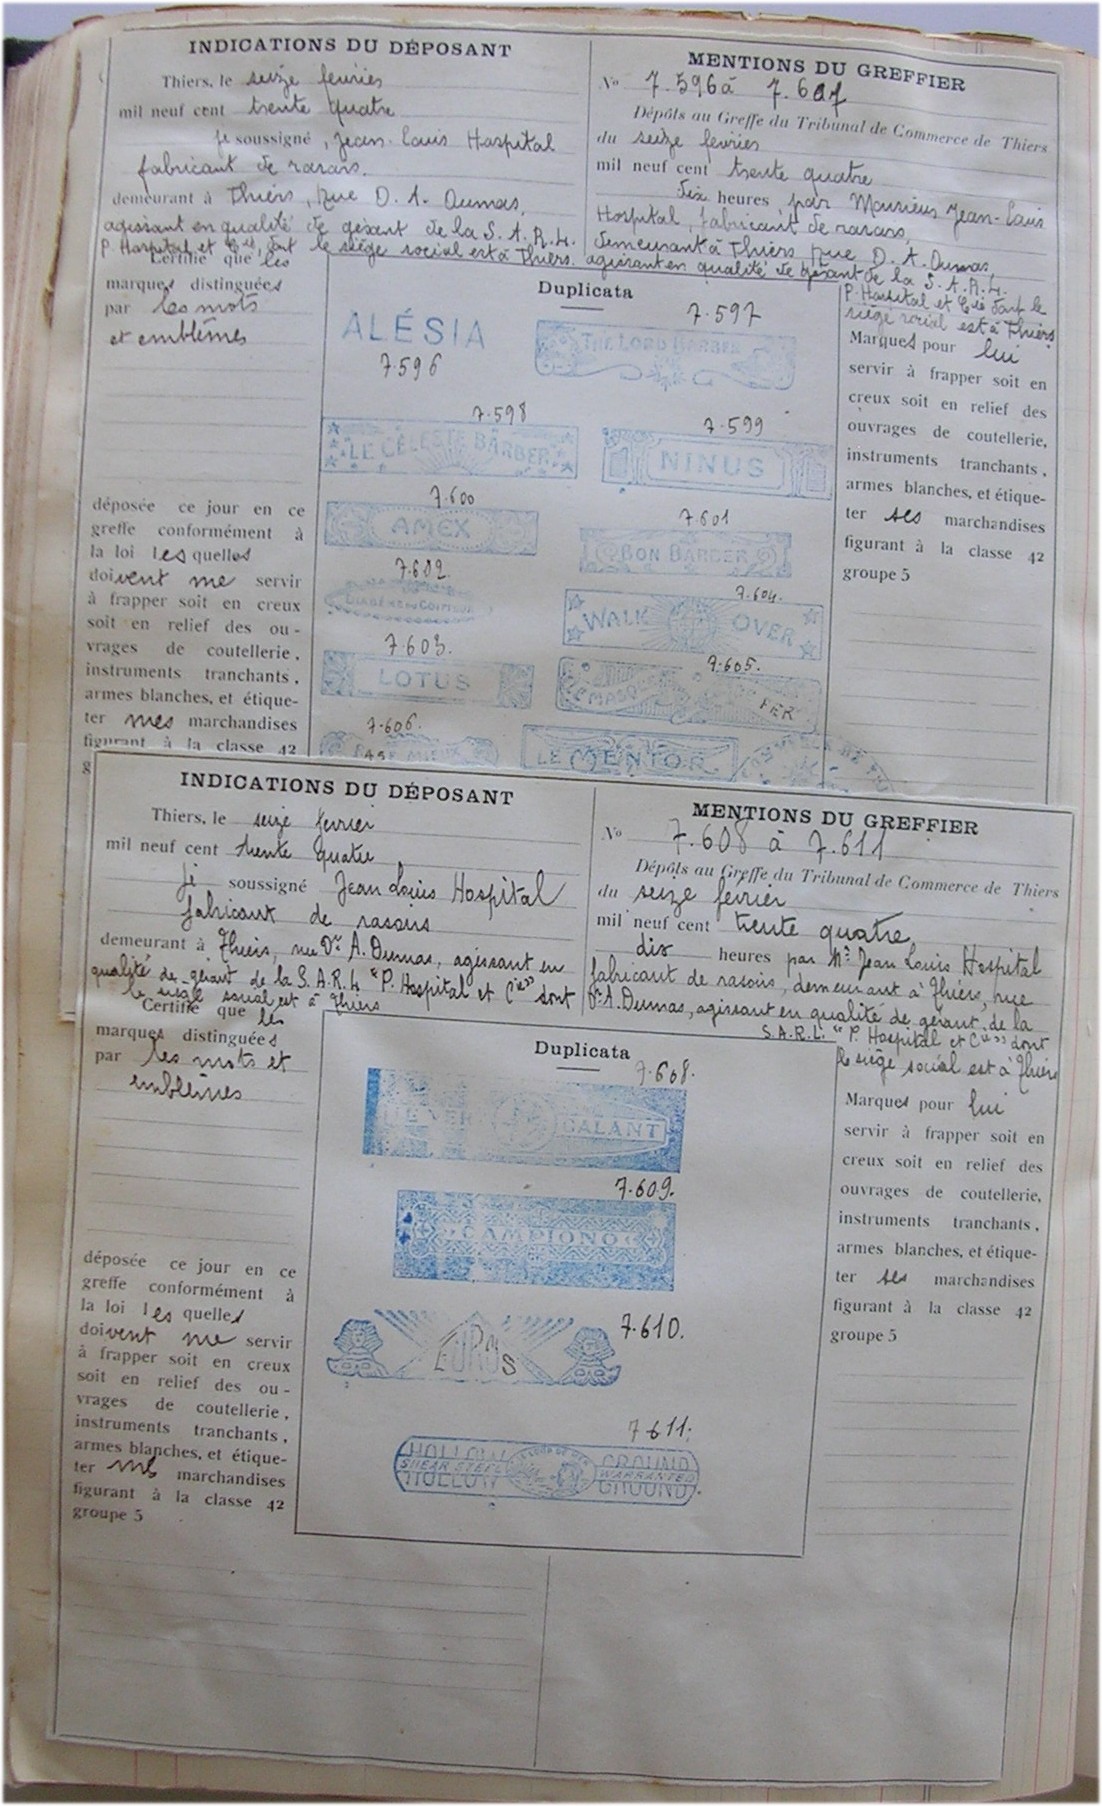 INDICATIONS DU DÉPOSANT
Thiers, le seize fevrier
mil neuf cent trente quatre
je soussigné, Jean-Louis Hospital
fabricant de rasoirs.
demeurant à Thiers, rue D. A. Dumas,
agissant en qualité de gérant de la S. A. R. L.
P. Hospital et Cie, dont le siège social est à Thiers.
Certifie que les
marques distinguées
par les mots
et emblêmes
déposée ce jour en ce
greffe conformément à
la loi lesquelles
doivent me servir
à frapper soit en creux
soit en relief des ou-
vrages de coutellerie,
instruments tranchants,
armes blanches, et étique-
ter mes marchandises
figurant à la classe 42
g
MENTIONS DU GREFFIER
No 7.596 à 7.607
Dépôts au Greffe du Tribunal de Commerce de Thiers
du seize fevrier
mil neuf cent trente quatre
dix heures par Monsieur Jean-Louis
Hospital, fabricant de rasoirs,
demeurant à Thiers rue D. A. Dumas,
agissant en qualité de gérant de la S. A. R. L.
P. Hospital et Cie dont le
siège social est à Thiers
Marques pour lui
servir à frapper soit en
creux soit en relief des
ouvrages de coutellerie,
instruments tranchants,
armes blanches, et étique-
ter ses marchandises
figurant à la classe 42
groupe 5
Duplicata
ALÉSIA
7.596
7.597
THE LORD BARBER
7.598
LE CÉLESTE BARBER
7.599
NINUS
7.600
AMEX
7.601
BON BARBER
7.602.
7.603.
LOTUS
7.604.
WALK OVER
7.605.
LE MASQUE DE FER
7.606.
RASE MIEUX
LE MENTOR
INDICATIONS DU DÉPOSANT
Thiers, le seize fevrier
mil neuf cent trente quatre
je soussigné Jean Louis Hospital
fabricant de rasoirs
demeurant à Thiers, rue Dr A. Dumas, agissant en
qualité de gérant de la S.A.R.L "P. Hospital et Cie" dont
le siège social est à Thiers
Certifie que les
marques distinguées
par les mots et
emblêmes
déposée ce jour en ce
greffe conformément à
la loi lesquelles
doivent me servir
à frapper soit en creux
soit en relief des ou-
vrages de coutellerie,
instruments tranchants,
armes blanches, et étique-
ter mes marchandises
figurant à la classe 42
groupe 5
MENTIONS DU GREFFIER
No 7.608 à 7.611
Dépôts au Greffe du Tribunal de Commerce de Thiers
du seize fevrier
mil neuf cent trente quatre
dix heures par Mr Jean Louis Hospital
fabricant de rasoirs, demeurant à Thiers, rue
Dr A. Dumas, agissant en qualité de gérant de la
S.A.R.L. "P. Hospital et Cie" dont
le siège social est à Thiers
Marques pour lui
servir à frapper soit en
creux soit en relief des
ouvrages de coutellerie,
instruments tranchants,
armes blanches, et étique-
ter ses marchandises
figurant à la classe 42
groupe 5
Duplicata
7.608.
GALANT
7.609.
CAMPIONO
7.610.
7.611.
HOLLOW GROUND
SHEAR STEEL WARRANTED
HOLLOW GROUND